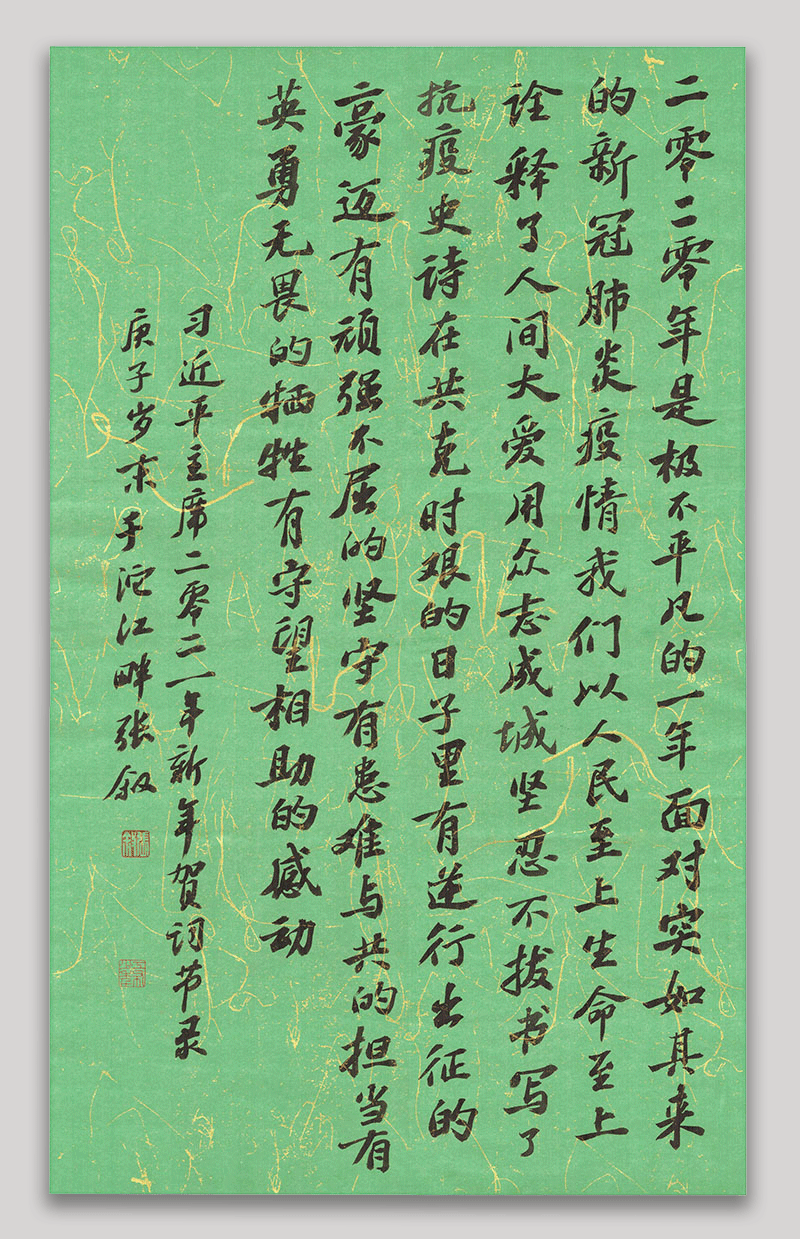 二零二零年是极不平凡的一年面对突如其来
的新冠肺炎疫情我们以人民至上生命至上
诠释了人间大爱用众志成城坚忍不拔书写了
抗疫史诗在共克时艰的日子里有逆行出征的
豪迈有顽强不屈的坚守有患难与共的担当有
英勇无畏的牺牲有守望相助的感动
习近平主席二零二一年新年贺词节录
庚子岁末于沱江畔张叙